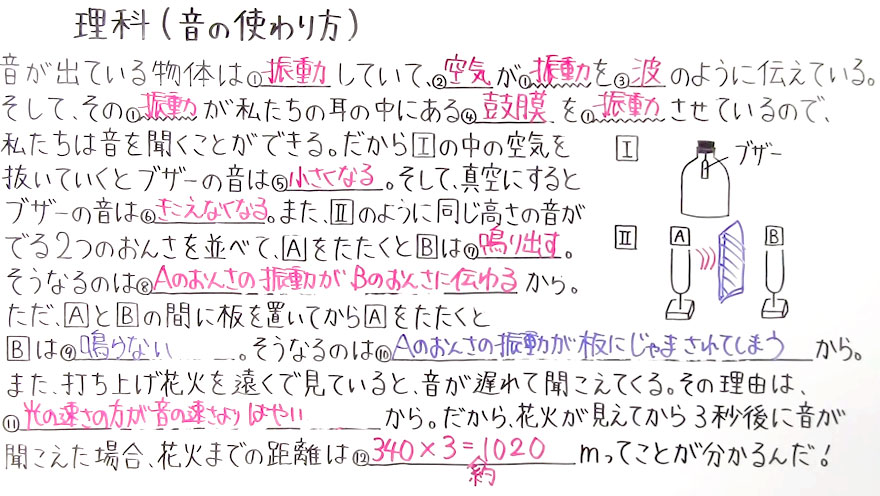 理科(音の使わり方)
音が出ている物体は①振動していて、②空気が①振動を③波のように伝えている。
そして、その①振動が私たちの耳の中にある④鼓膜を①振動させているので、
私たちは音を聞くことができる。だからⅠの中の空気を
抜いていくとブザーの音は⑤小さくなる。そして、真空にすると
ブザーの音は⑥きこえなくなる。また、Ⅱのように同じ高さの音が
でる2つのおんさを並べて、AをたたくとBは⑦鳴り出す。
そうなるのは⑧Aのおんさの振動がBのおんさに伝わるから。
ただ、AとBの間に板を置いてからAをたたくと
Bは⑨鳴らない。そうなるのは⑩Aのおんさの振動が板にじゃまされてしまうから。
また、打ち上げ花火を遠くで見ていると、音が遅れて聞こえてくる。その理由は、
⑪光の速さの方が音の速さよりはやいから。だから、花火が見えてから3秒後に音が
聞こえた場合、花火までの距離は⑫340×3=1020mってことが分かるんだ!
約
Ⅰ
ブザー
Ⅱ
A
B